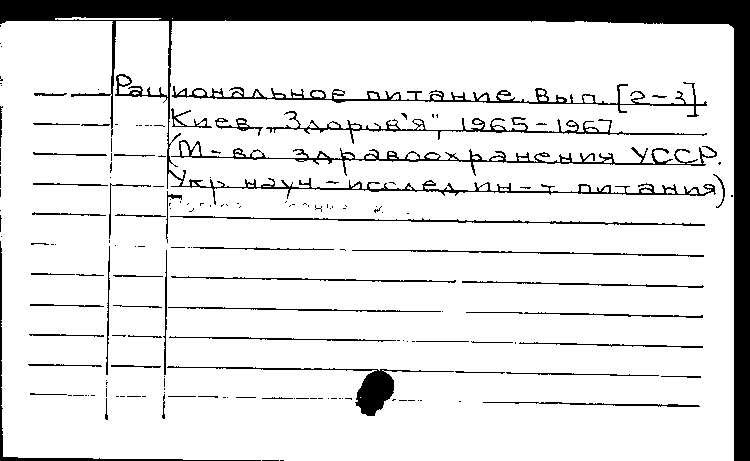 Рациональное питание. Вып. [2-3].
Киев, „Здоров'я", 1965-1967.
(М-во здравоохранения УССР.
Укр. науч.-исслед. ин-т питания).